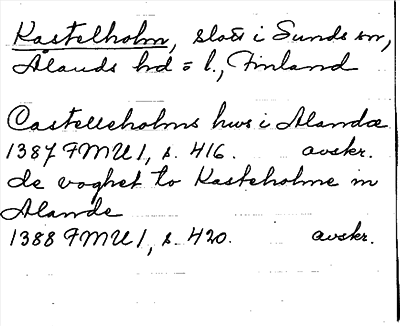 Kastelholm, slott i Sunds sn,
Ålands hd = l., Finland
Castelleholms hws i Alandæ
1387 FMU 1, s. 416. avskr.
de voghet to Kasteholme in
Alande
1388 FMU 1, s. 420. avskr.